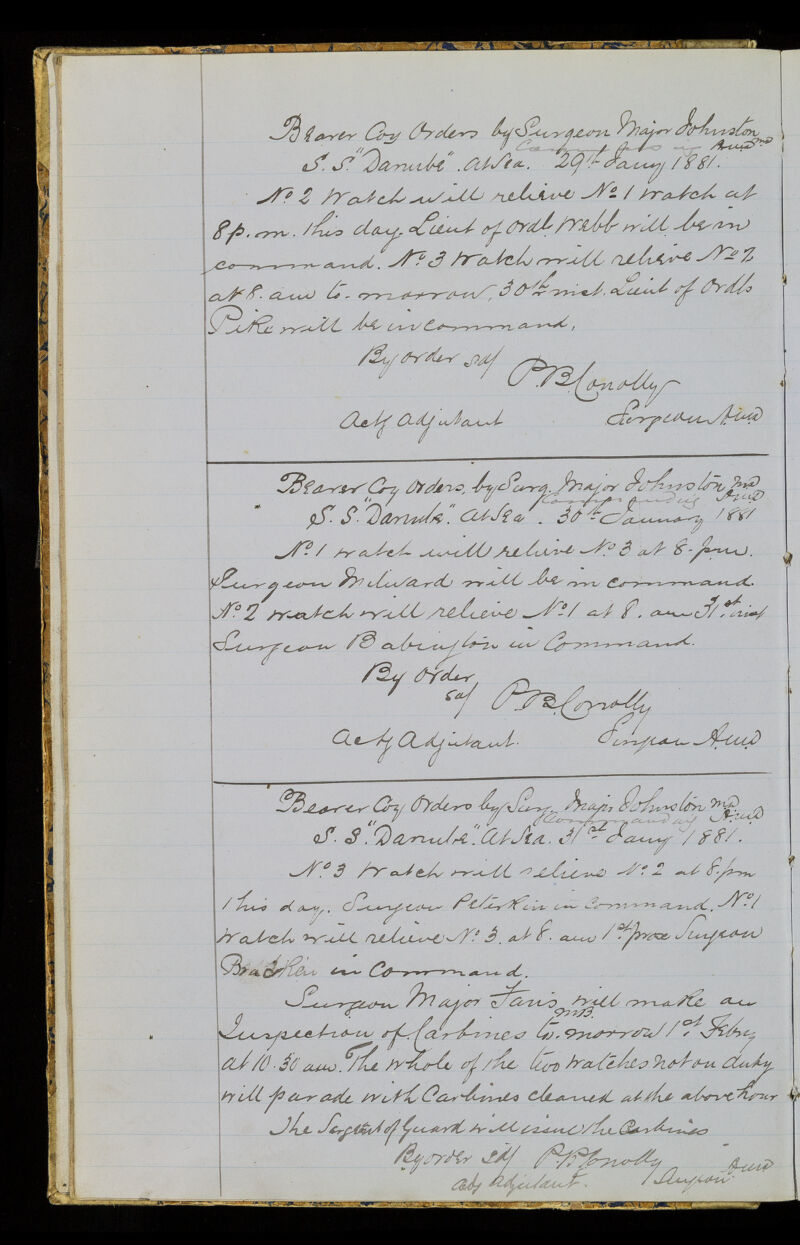 Bearer Coy Orders by Surgeon Major Johnston MD
Commanding AMD
S.S. "Danube". At Sea. 29th Jany 1881.
No 2 Watch will relieve No 1 Watch at
8 p.m. this day. Lieut of Ordls Webb will be in
command. No 3 Watch will relieve No 2
at 8. am to-morrow, 30th inst. Lieut of Ordls
Pike will be in command.
By order sd/ P.B. Conolly
Actg Adjutant Surgeon AMD
Bearer Coy Orders, by Surg. Major Johnston MD
Commanding AMD
S.S. "Danube". At Sea. 30th January 1881
No. 1 watch will relieve No 3 at 8. pm.
Surgeon Milward will be in command.
No 2 watch will relieve No 1 at 8. am 31st. inst
Surgeon Babington in Command.
By Order
sd/ P.B. Conolly
Actg Adjutant. Surgeon AMD
Bearer Coy Orders by Surg. Major Johnston MD
Commanding AMD
S.S. "Danube". At Sea. 31st Jany 1881.
No 3 Watch will relieve No 2 at 8. pm
this day. Surgeon Peterkin in Command. No 1
Watch will relieve No 3. at 8. am 1st prox Surgeon
in Command.
Surgeon Major Faris MB. will make an
Inspection of Carbines to-morrow 1st Febry
at 10.30 am. The whole of the two Watches not on duty
will parade with Carbines cleaned at the above hour
The Sergeant of Guard will issue the Carbines
By order sd/ P.B. Conolly
actg Adjutant. Surgeon AMD